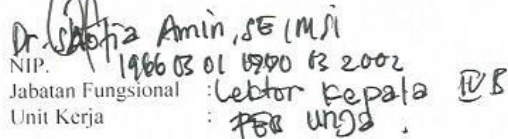 Dr. Shofia Amin, SE, MSi
NIP. 1966 03 01 1990 03 2002
Jabatan Fungsional : Lektor Kepala IV B
Unit Kerja : FEB Unja